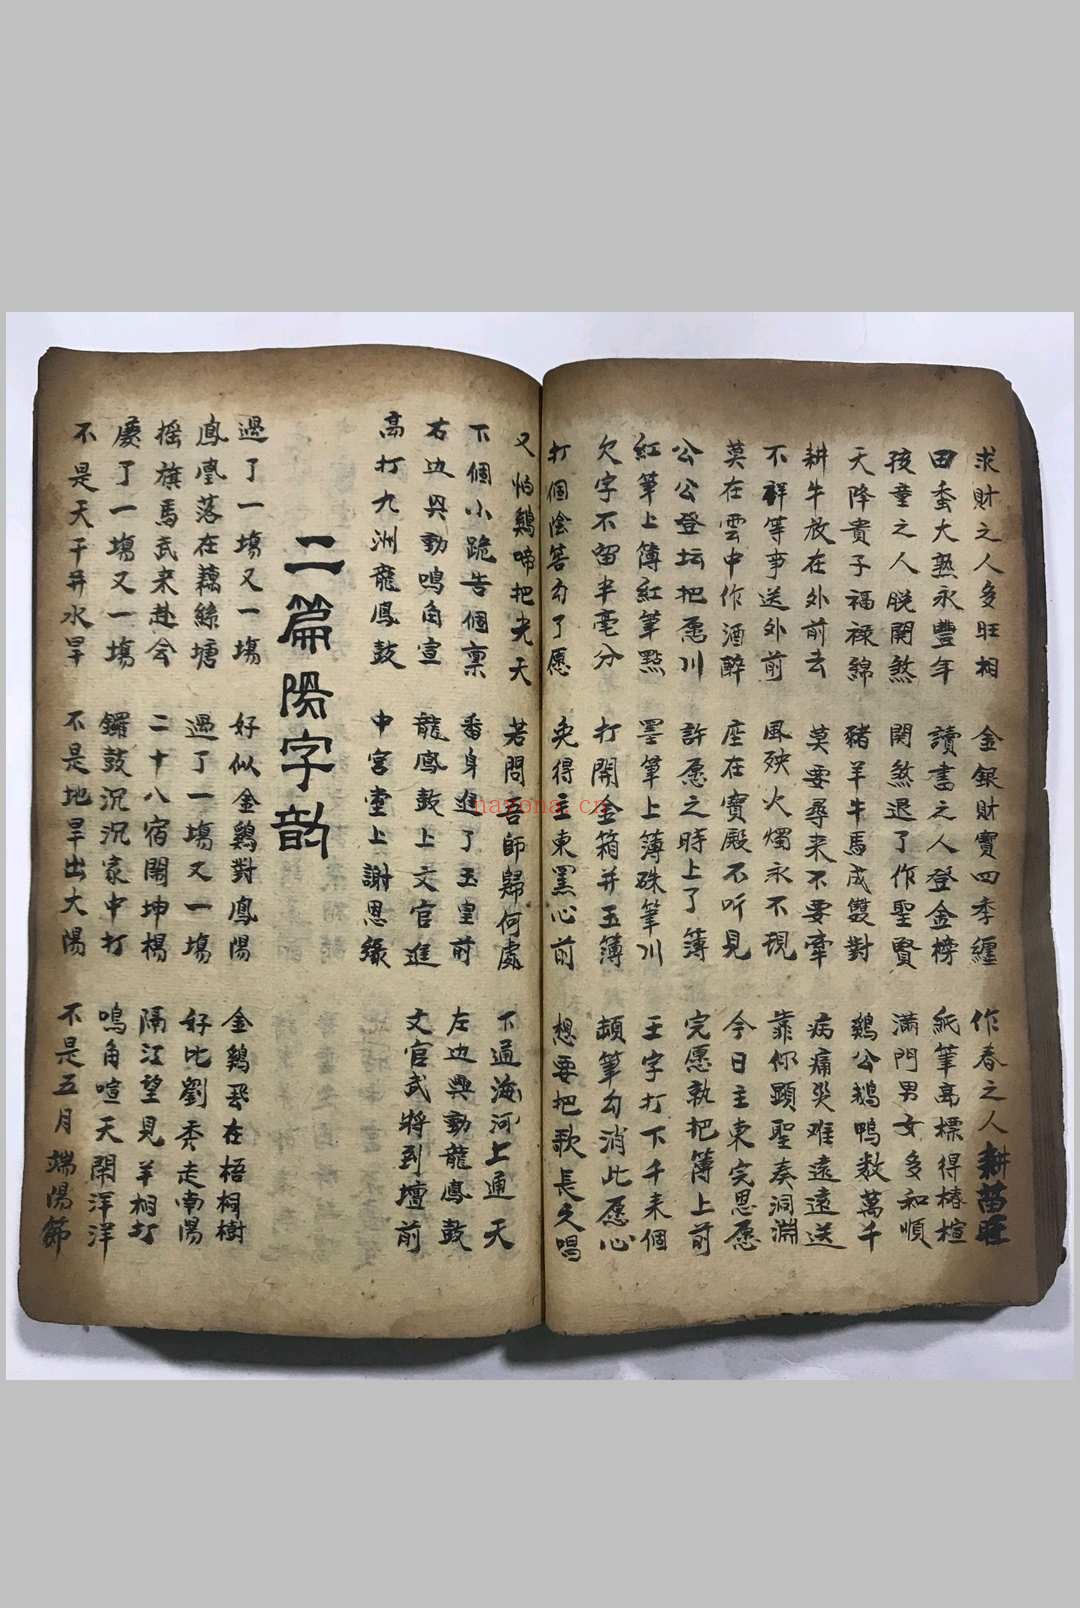 求財之人多旺相 金銀財寶四季纏 作春之人耕苗旺
田蚕大熟永豐年 讀書之人登金榜 紙筆高標得椿楦
孩童之人脱関煞 関煞退了作聖賢 滿門男女多和順
天降貴子福禄綿 豬羊牛馬成雙對 鷄公鵝鴨数萬千
耕牛放在外前去 莫要尋来不要牽 病痛災难遠遠送
不祥等事送外前 風殃火燭永不現 靠你顕聖奏洞淵
莫在雲中作酒醉 座在寳殿不听見 今日主東完恩愿
公公登坛把愿川 許愿之時上了簿 完愿執把簿上前
紅筆上簿紅筆點 墨筆上簿硃筆川 王字打下千来個
欠字不留半毫分 打開金箱并玉簿 頡筆勾消此愿心
打個陰筶勾了愿 免得主東罣心前 想要把歌長久唱
又怕鷄啼把光天 若問吾師歸何處 下通海河上通天
下個小跪告個禀 番身進了玉皇前 左边興動龍鳳鼓
右边興動鳴角宣 龍鳳鼓上文官進 文官武將到壇前
高打九洲龍鳳鼓 中宮堂上謝恩緣
二篇陽字韵
過了一塲又一塲 好似金鷄對鳳陽 金鷄飛在梧桐樹
鳳凰落在藕絲塘 過了一塲又一塲 好比劉秀走南陽
摇旗馬武来赴会 二十八宿閙坤楊 隔江望見羊相打
慶了一塲又一塲 鑼鼓沉沉家中打 鳴角喧天閙洋洋
不是天干井水旱 不是地旱出大陽 不是五月端陽節
nayona.cn